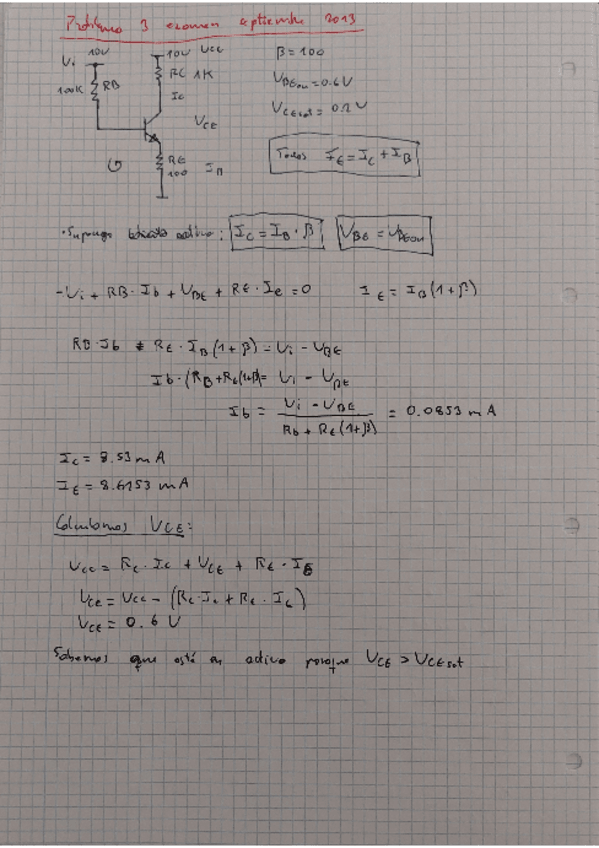 Problema 3 examen septiembre 2013
Vi 10V
10V Vcc
100K RB
RC 1K
Ic
VCE
RE
100
IB
β = 100
VBEon = 0.6V
VCEsat = 0.2V
Todos IE = IC + IB
· Supongo estado activo: IC = IB · β VBE = VBEon
-Vi + RB · Ib + VBE + RE · Ie = 0 IE = IB (1+β)
RB · Ib + RE · IB (1+β) = Vi - VBE
Ib · (RB + RE(1+β) = Vi - VBE
Ib = Vi - VBE / Rb + RE (1+β) = 0.0853 mA
Ic = 8.53 mA
IE = 8.6153 mA
Calculamos VCE:
Vcc = Rc · Ic + VCE + RE · IE
Vce = Vcc - (Rc · Ic + RE · IE)
VCE = 0.6 V
Sabemos que está en activo porque VCE > VCEsat